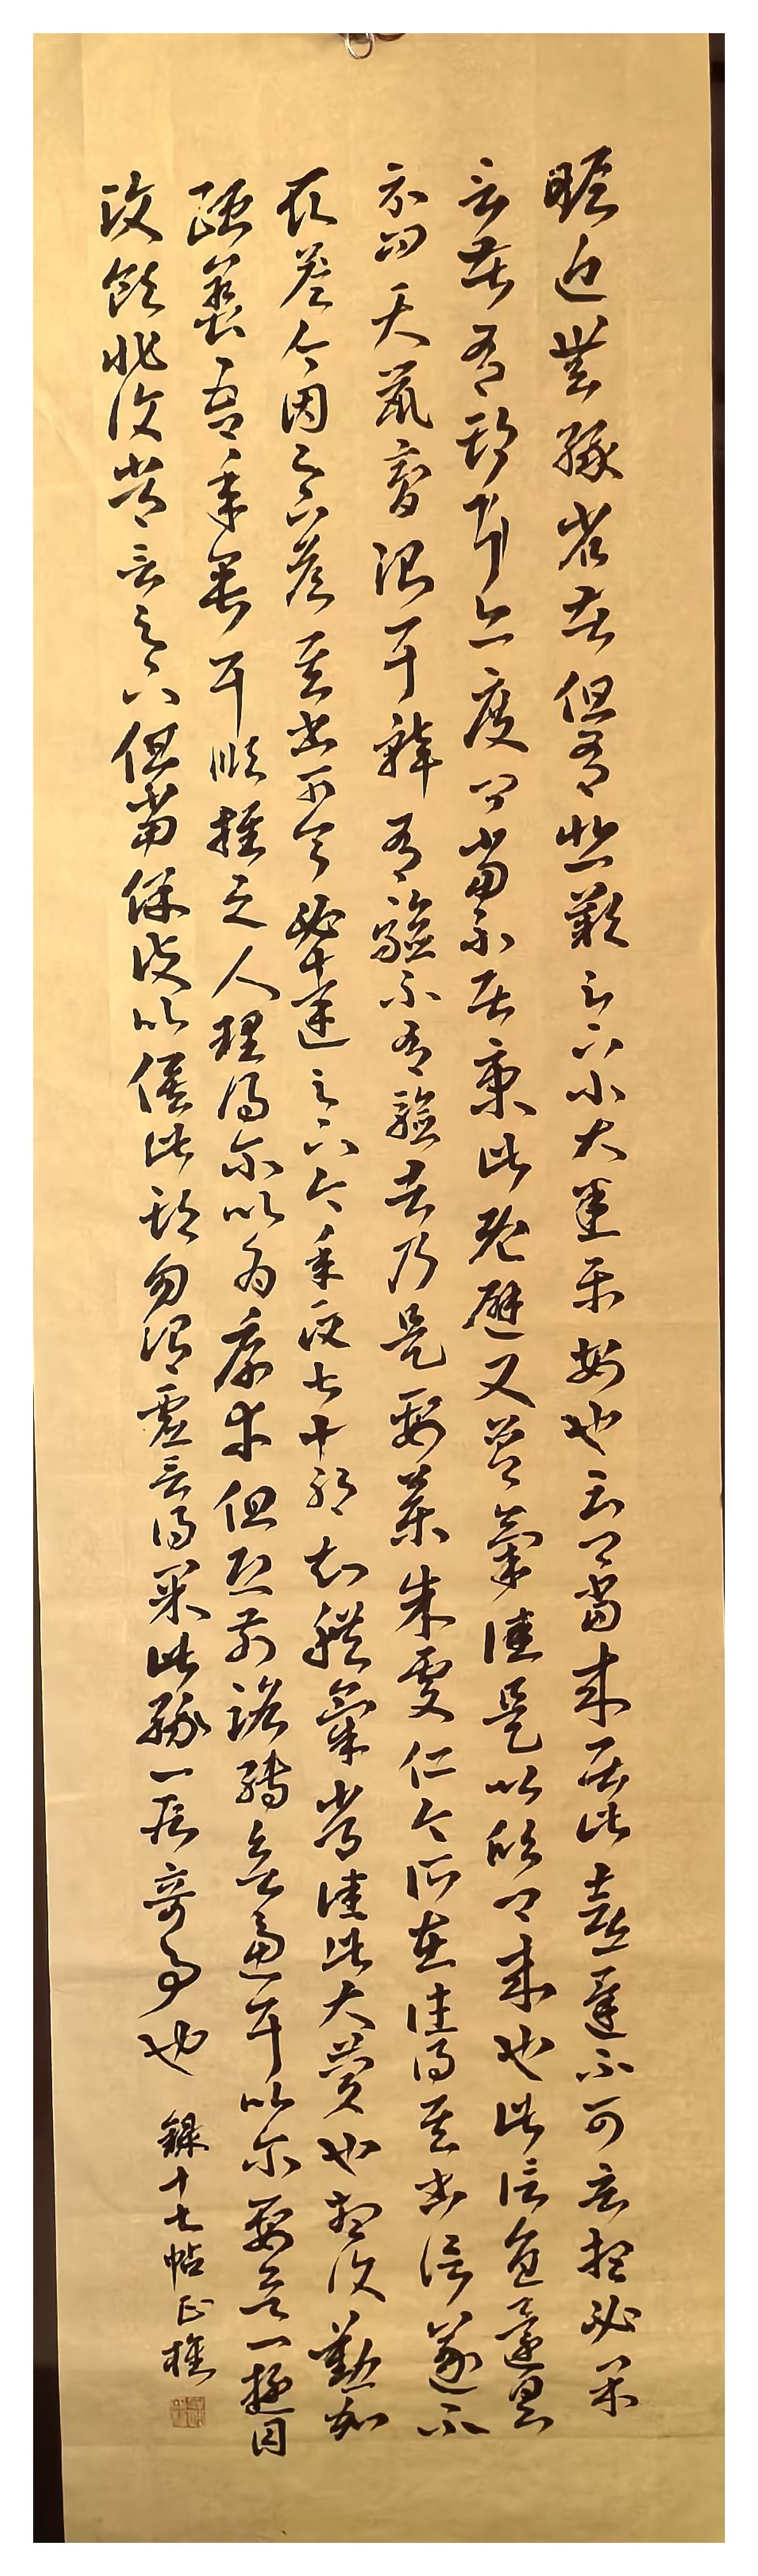 瞻近無緣省苦但有悲歎足下小大悉平安也云卿當來居此喜遲不可言想必果
言苦有期耳亦度卿當不居京此既避又節氣佳是以欣卿來也此信旨還具
示問天鼠膏治耳聾有驗不有驗者乃是要藥朱處仁今所在往得其書信遂不
取答今因足下答其書可令必達足下今年政七十耶知體氣常佳此大慶也想復懃加
頤養吾年垂耳順推之人理得爾以為厚幸但恐前路轉欲逼耳以爾要欲一遊目
汶領非復常言足下但當保護以俟此期勿謂虛言得果此緣一段奇事也 錄十七帖